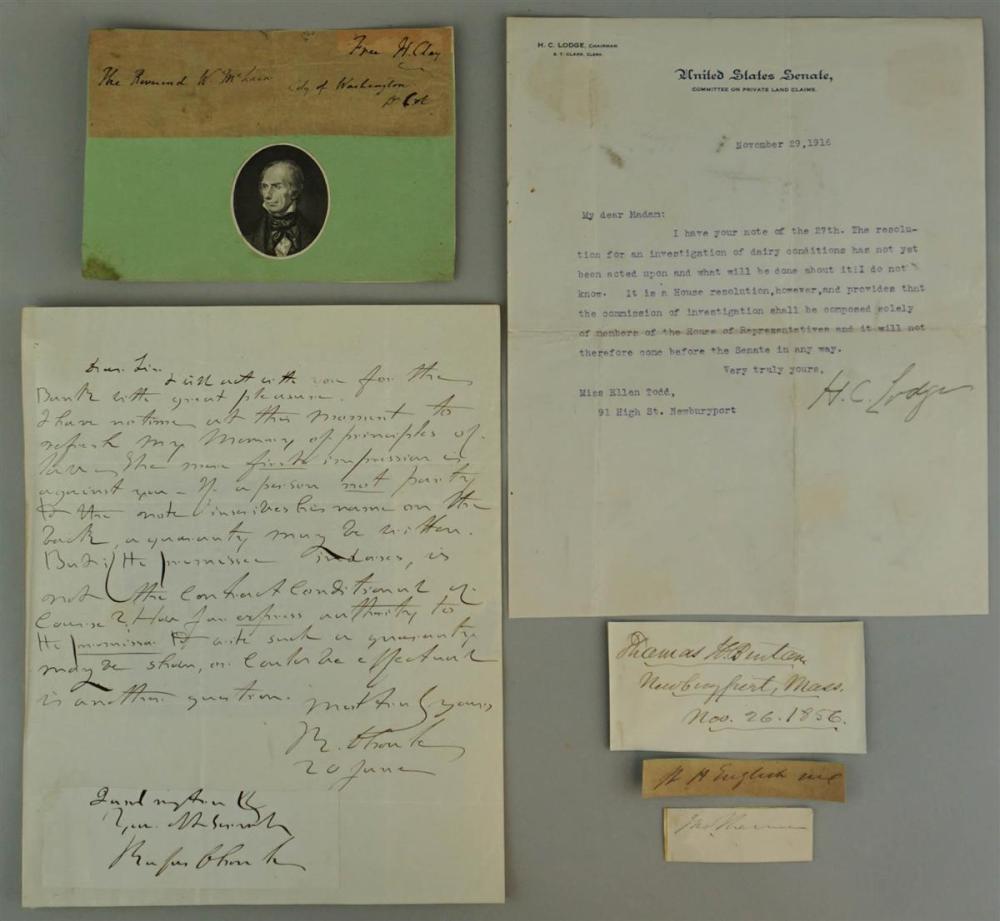 Free H. Clay
The Reverend W McLain
City of Washington
D Col
H. C. LODGE, CHAIRMAN
S. T. CLARK, CLERK.
United States Senate,
COMMITTEE ON PRIVATE LAND CLAIMS.
November 29,1916
My dear Madam:
I have your note of the 27th. The resolu-
tion for an investigation of dairy conditions has not yet
been acted upon and what will be done about it I do not
know. It is a House resolution,however,and provides that
the commission of investigation shall be composed solely
of members of the House of Representatives and it will not
therefore come before the Senate in any way.
Very truly yours,
H. C. Lodge
Miss Ellen Todd,
91 High St. Newburyport
Dear Sir.
I will act with you for the
Bank with great pleasure.
I have no time at this moment to
refresh my Memory of principles of
law - The mere first impression is
against you - If a person not party
to the note inscribes his name on the
back, a guaranty may be written.
But if the promissee indorses, is
not the contract conditional of
course? How far express authority to
the promissee to write such a guaranty
may be shown, or could be effectual
is another question.
most truly yours
R. Choate
20 June
Rufus Choate
Thomas H. Benton
Newburyport, Mass.
Nov. 26. 1856.
W H English